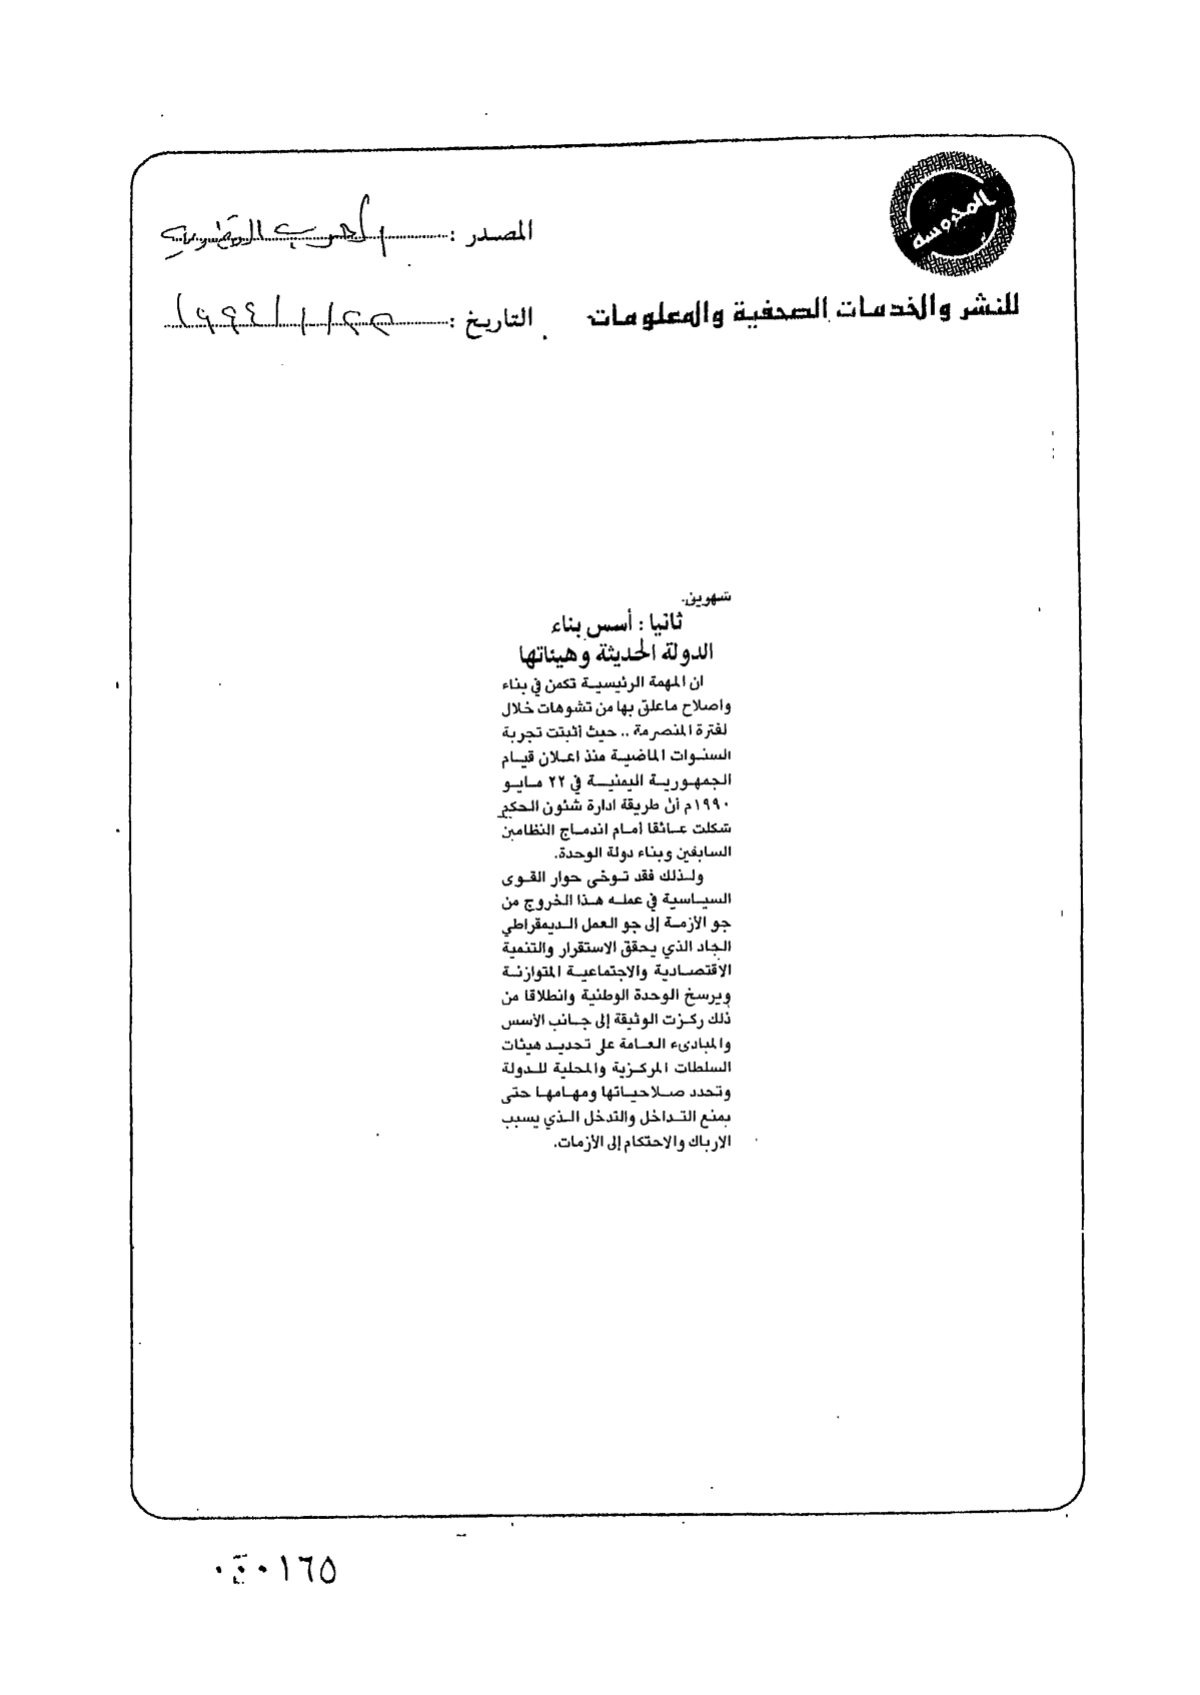 المحروسة
المصدر :
للنشر والخدمات الصحفية والمعلومات
التاريخ : ١٩٩٤/١/٢٣
شهوين.
ثانيا : أسس بناء
الدولة الحديثة وهيئاتها
ان المهمة الرئيسية تكمن في بناء
واصلاح ماعلق بها من تشوهات خلال
لفترة المنصرمة .. حيث أثبتت تجربة
السنوات الماضية منذ اعلان قيام
الجمهورية اليمنية في ٢٢ مايو
١٩٩٠م أن طريقة ادارة شئون الحكم
شكلت عائقا أمام اندماج النظامين
السابقين وبناء دولة الوحدة.
ولذلك فقد توخى حوار القوى
السياسية في عمله هذا الخروج من
جو الأزمة إلى جو العمل الديمقراطي
الجاد الذي يحقق الاستقرار والتنمية
الاقتصادية والاجتماعية المتوازنة
ويرسخ الوحدة الوطنية وانطلاقا من
ذلك ركزت الوثيقة إلى جانب الأسس
والمبادىء العامة على تحديد هيئات
السلطات المركزية والمحلية للدولة
وتحدد صلاحياتها ومهامها حتى
يمنع التداخل والتدخل الذي يسبب
الارباك والاحتكام إلى الأزمات.
٠٤٠١٦٥